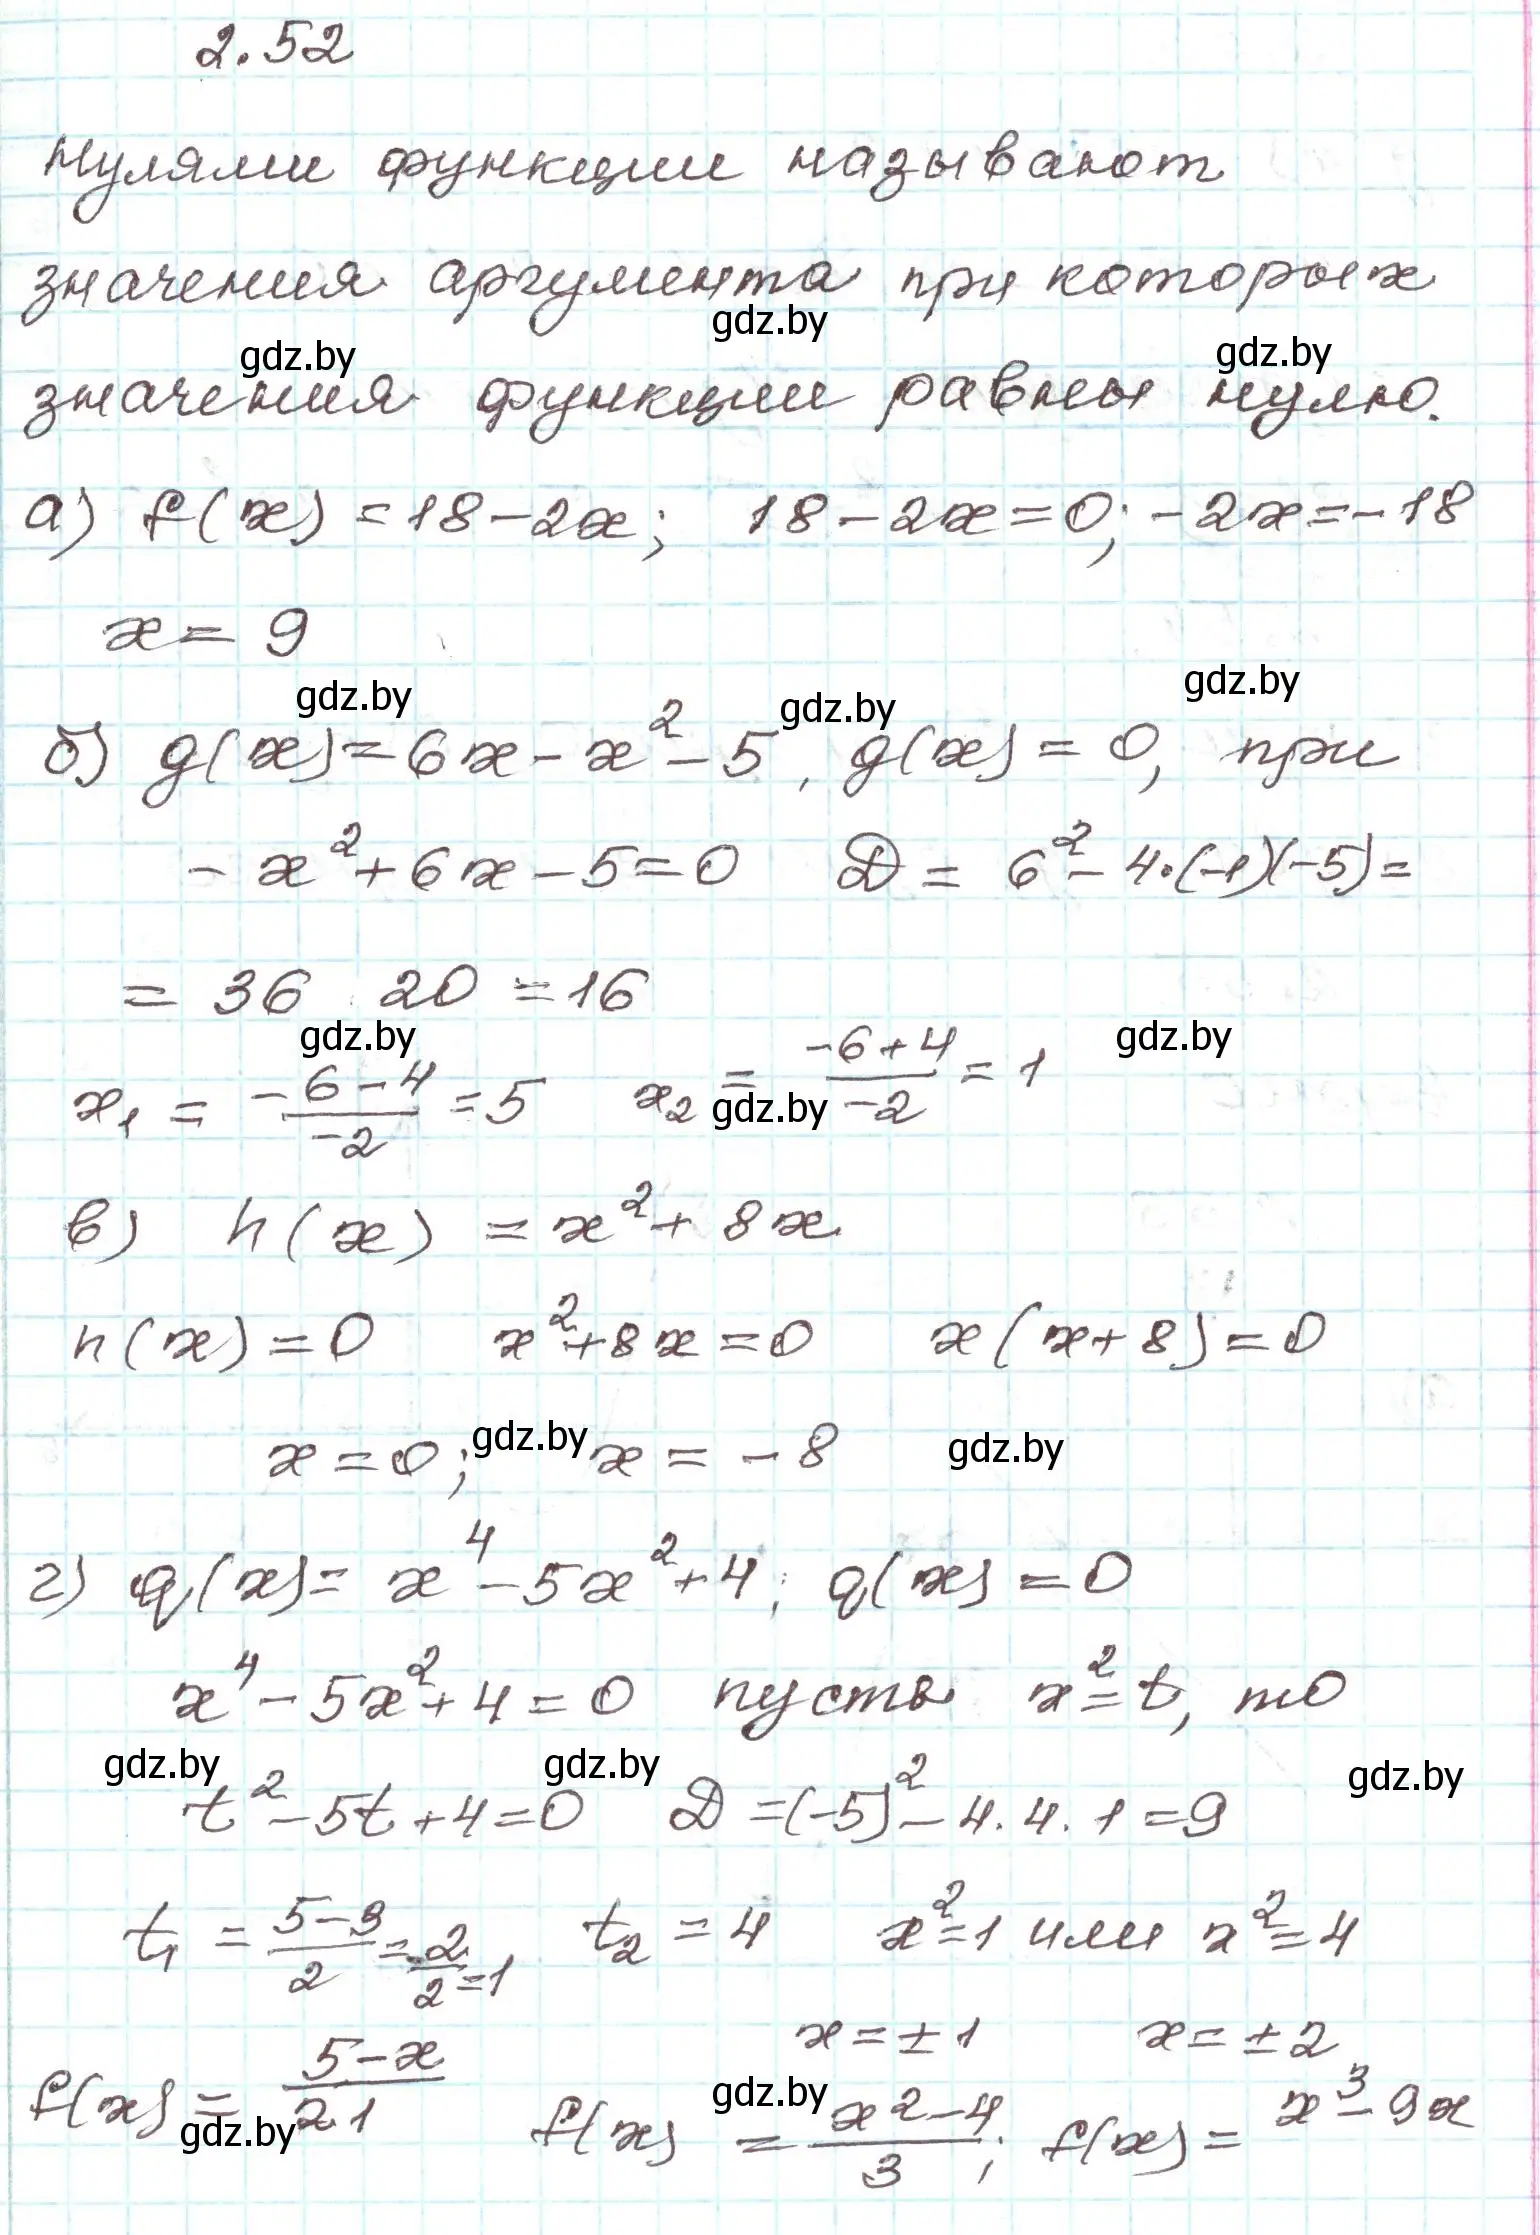 2.52
Нулями функции называют
значения аргумента при которых
gdz.by
gdz.by gdz.by
значения функции равны нулю.
а) f(x) = 18 - 2x; 18 - 2x = 0; -2x = -18
x = 9
gdz.by gdz.by gdz.by
б) g(x) = 6x - x² - 5, g(x) = 0, при
- x² + 6x - 5 = 0 D = 6² - 4·(-1)(-5) =
= 36 20 = 16
gdz.by gdz.by
x₁ = (-6-4)/(-2) = 5 x₂ = (-6+4)/(-2) = 1
gdz.by
в) h(x) = x² + 8x
h(x) = 0 x² + 8x = 0 x(x+8) = 0
x = 0; x = -8
gdz.by gdz.by
г) q(x) = x⁴ - 5x² + 4; q(x) = 0
x⁴ - 5x² + 4 = 0 пусть x² = t, то
gdz.by gdz.by gdz.by
t² - 5t + 4 = 0 D = (-5)² - 4·4·1 = 9
t₁ = (5-3)/2 = 2/2 = 1 t₂ = 4 x² = 1 или x² = 4
x = ±1 x = ±2
gdz.by
f(x) = (5-x)/21 f(x) = (x²-4)/3; f(x) = x³ - 9x
gdz.by